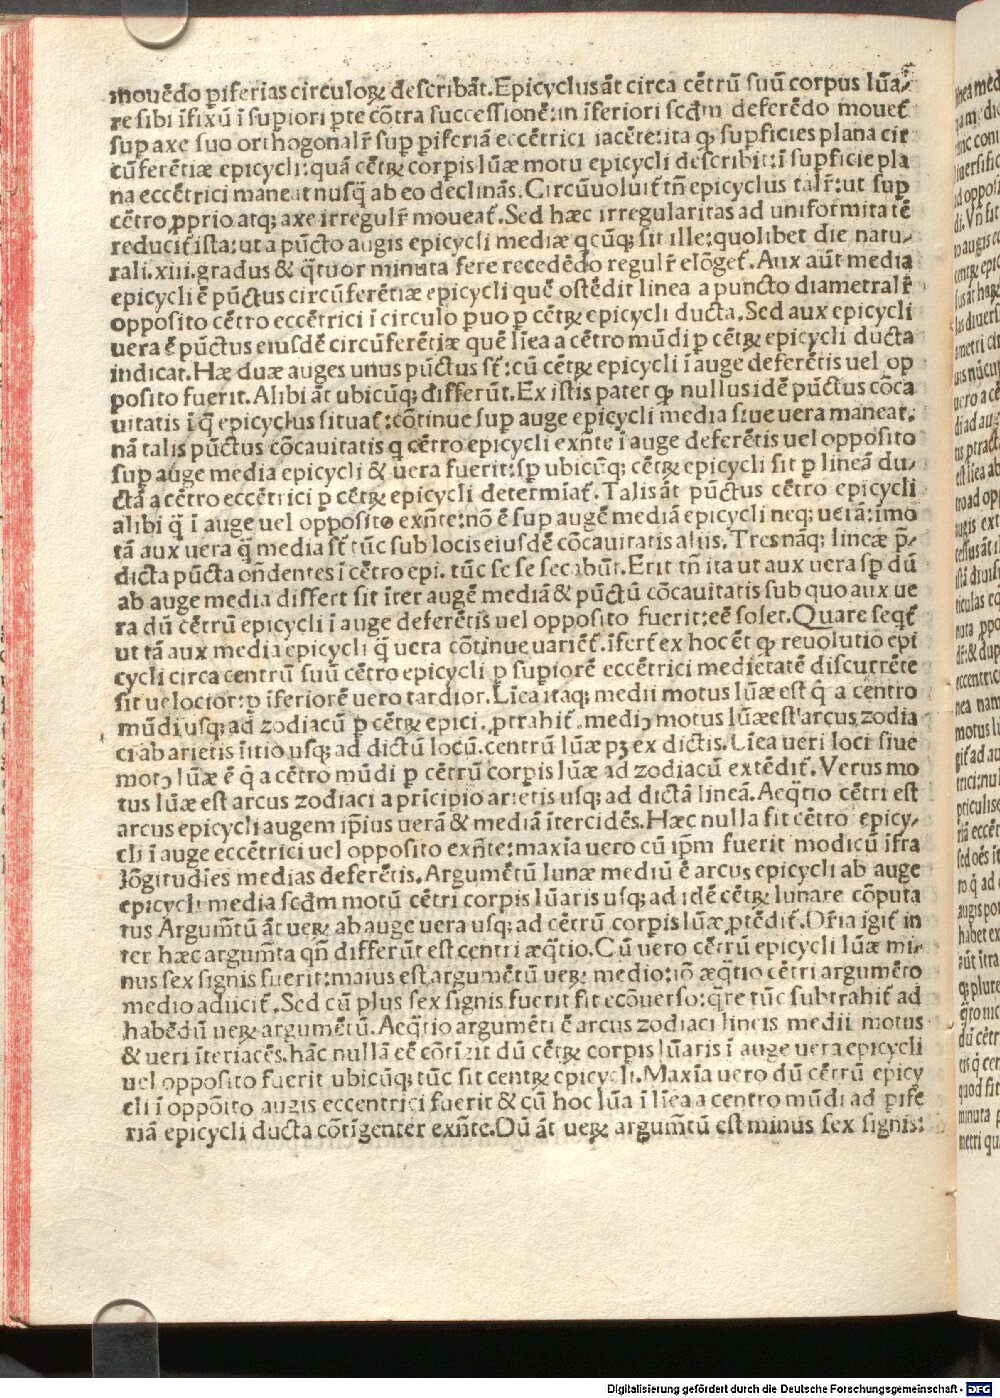 mouēdo ꝑiferias circuloꝝ deſcribāt. Epicyclus āt circa cētrū ſuū corpus lūa⸗
re ſibi īfixū ī ſupiori ꝑte cōtra ſucceſſionē: in īferiori ſcḋm deferēdo mouet̄
ſuꝑ axe ſuo orthogonalr̄ ſuꝑ ꝑiferiā eccētrici iacēte: ita ꝙ ſuꝑficies plana cir
cūferētiæ epicycli: quā cētꝝ corꝑis lūæ motu epicycli deſcribit: ī ſuꝑficie pla
na eccētrici maneat nuſq̄ ab eo declinās. Circūuoluit̄ tn̄ epicyclus talr̄: ut ſuꝑ
cētro ꝓprio atq; axe irregulr̄ moueat̄. Sed hæc irregularitas ad uniformitatē
reducit̄ iſta: ut a pūcto augis epicycli mediæ qcūq; ſit ille: quolibet die natu⸗
rali .xiii. gradus & q̄tuor minuta fere recedēdo regulr̄ elōget̄. Aux aūt media
epicycli ē pūctus circūferētiæ epicycli quē oſtēdit linea a puncto diametralr̄
oppoſito cētro eccētrici ī circulo ꝑuo ꝑ cētꝝ epicycli ducta. Sed aux epicycli
uera ē pūctus eiuſdē circūferētiæ quē līea a cētro mūdi ꝑ cētꝝ epicycli ducta
indicat. Hæ duæ auges unus pūctus ſt̄: cū cētꝝ epicycli ī auge deferētis uel op
poſito fuerit. Alibi āt ubicūq; differūt. Ex iſtis patet ꝙ nullus idē pūctus cōca
uitatis ī q̄ epicyclus ſituat̄: cōtinue ſuꝑ auge epicycli media ſiue uera maneat.
nā talis pūctus cōcauitatis q cētro epicycli exn̄te ī auge deferētis uel oppoſito
ſuꝑ auge media epicycli & uera fuerit: ſꝑ ubicūq; cētꝝ epicycli ſit ꝑ lineā du⸗
ctā a cētro eccētrici ꝑ cētꝝ epicycli determīat̄. Talis āt pūctus cētro epicycli
alibi q̄ ī auge uel oppoſito exn̄te: nō ē ſuꝑ augē mediā epicycli neq; uerā: īmo
tā aux uera q̄ media ſt̄ tūc ſub locis eiuſdē cōcauitatis aliis. Tres nāq; lineæ p̄⸗
dicta pūcta on̄dentes ī cētro epi. tūc ſe ſe ſecabūt. Erit tn̄ ita ut aux uera ſꝑ dū
ab auge media differt ſit īter augē mediā & pūctū cōcauitatis ſub quo aux ue
ra dū cētrū epicycli ī auge deferētis uel oppoſito fuerit: eē ſolet. Quare ſeqt̄
ut tā aux media epicycli q̄ uera cōtinue uariēt̄. īfert̄ ex hoc ēt ꝙ reuolutio epi
cycli circa centrū ſuū cētro epicycli ꝑ ſupiorē eccētrici medietatē diſcurrēte
ſit uelocior: ꝑ īferiorē uero tardior. Līea itaq; medii motus lūæ eſt q̄ a centro
mūdi uſq; ad zodiacū ꝑ cētꝝ epici. ꝓtrahit̄. mediꝰ motus lūæ eſt arcus zodia
ci ab arietis ītio uſq; ad dictū locū. centrū lūæ pꝫ ex dictis. Līea ueri loci ſiue
motꝰ lūæ ē q̄ a cētro mūdi ꝑ cētrū corꝑis lūæ ad zodiacū extēdit̄. Verus mo
tus lūæ eſt arcus zodiaci a prīcipio arietis uſq; ad dictā lineā. Aeq̄tio cētri eſt
arcus epicycli augem ip̄ius uerā & mediā ītercidēs. Hæc nulla fit cētro epicy⸗
cli ī auge eccētrici uel oppoſito exn̄te: maxīa uero cū ip̄m fuerit modicū īfra
lōgitudīes medias deferētis. Argumētū lunæ mediū ē arcus epicycli ab auge
epicycli media ſcḋm motū cētri corꝑis lūaris uſq; ad idē cētꝝ lunare cōputa
tus Argum̄tū āt ueꝝ ab auge uera uſq; ad cētrū corꝑis lūæ ꝓtēdit̄. Dr̄ia igit̄ in
ter hæc argum̄ta qn̄ differūt eſt centri æq̄tio. Cū uero cētrū epicycli lūæ mi⸗
nus ſex ſignis fuerit: maius eſt argumētū ueꝝ medio: iō æq̄tio cētri argumēto
medio adiicit̄. Sed cū plus ſex ſignis fuerit fit ecōuerſo: q̄re tūc ſubtrahit̄ ad
habēdū ueꝝ argumētū. Aeq̄tio argumēti ē arcus zodiaci lineis medii motus
& ueri īteriacēs. hāc nullā eē cōtīgit dū cētꝝ corꝑis lūaris ī auge uera epicycli
uel oppoſito fuerit ubicūq; tūc ſit centꝝ epicycli. Maxīa uero dū cētrū epicy
cli ī oppōito augis eccentrici fuerit & cū hoc lūa ī līea a centro mūdi ad ꝑife
riā epicycli ducta cōtīgenter exn̄te. Dū āt ueꝝ argum̄tū eſt minus ſex ſignis:
Digitalisierung gefördert durch die Deutsche Forschungsgemeinschaft - DFG